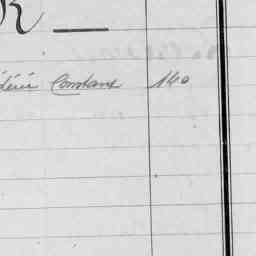 R
déric Constant 140